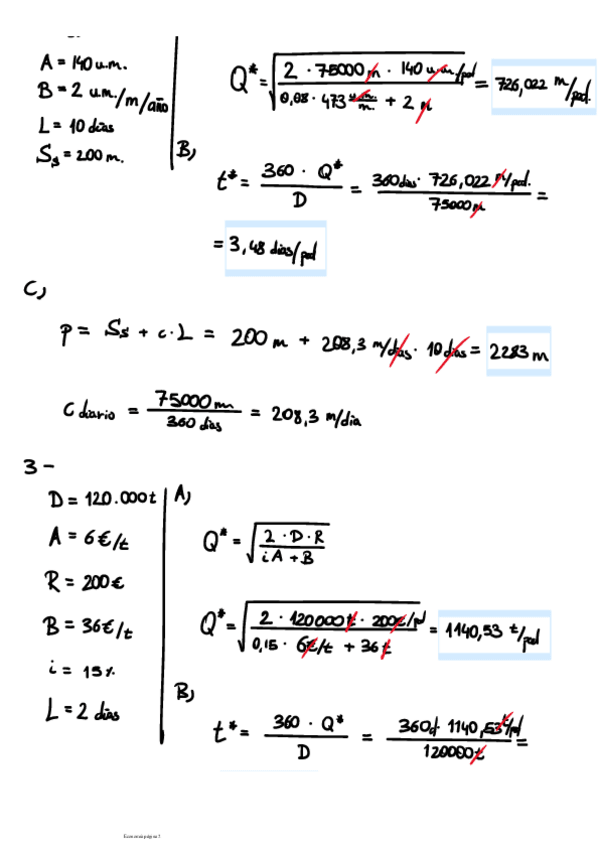 A = 140 u.m.
B = 2 u.m./m/año
L = 10 días
Ss = 200 m.
Q* = √(2 · 75000 m · 140 u.m./ped / 0,08 · 473 u.m./m. + 2 ) = 726,022 m/ped.
B)
t* = 360 · Q* / D = 360 dias · 726,022 m/ped. / 75000 m =
= 3,48 dias/ped
C)
P = Ss + c · L = 200 m + 208,3 m/dias · 10 dias = 2283 m
C diario = 75000 m / 360 dias = 208,3 m/dia
3 -
D = 120.000 t
A = 6 €/t
R = 200 €
B = 36 €/t
i = 15 %
L = 2 dias
A)
Q* = √(2 · D · R / iA + B)
Q* = √(2 · 120000 t · 200 €/pd / 0,15 · 6 €/t + 36 t) = 1140,53 t/ped
B)
t* = 360 · Q* / D = 360 d 1140,53 t/pd / 120000 t =